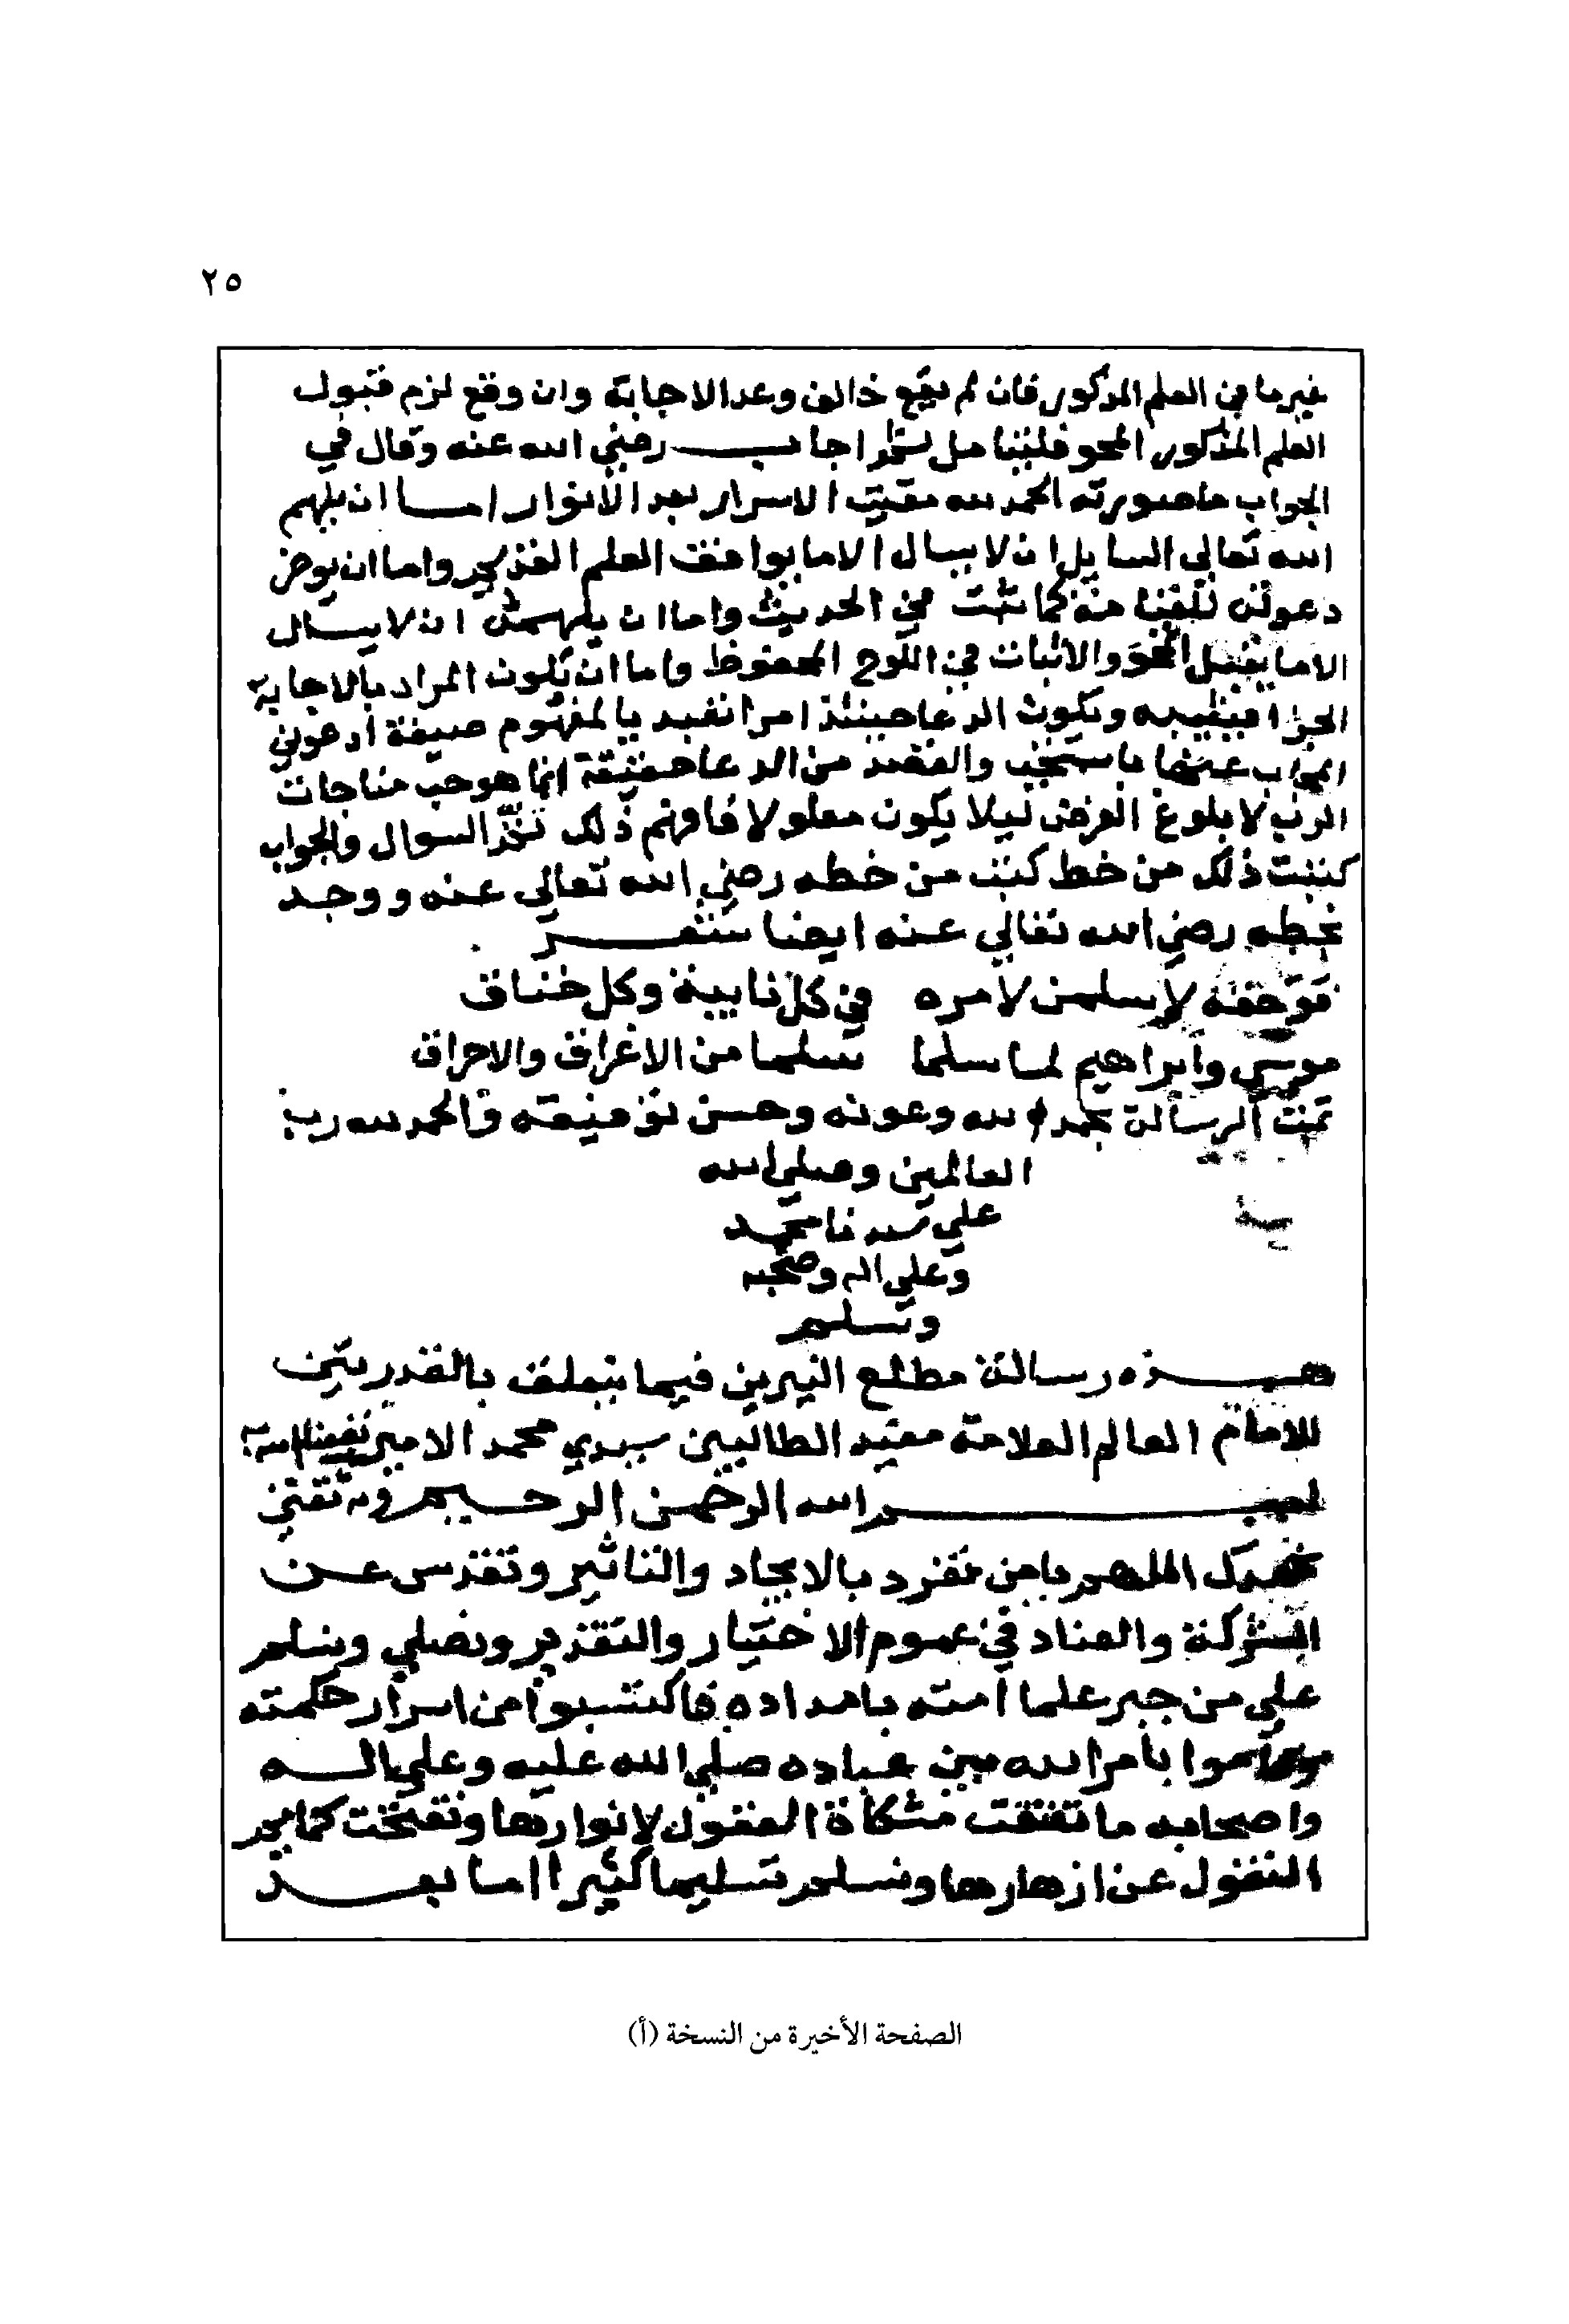 ٢٥
غيرما في العلم المذكور فان لم يقع خالف وعد الاجابة وان وقع لزم قبول
العلم المذكور المحو فلبنا اجاب رضي الله عنه وقال في
الجواب ما صورته الحمد لله مفيت الاسرار بعد الانوار اما ان يلهم
الله تعالى السايل ان لا يسال الا ما يوافق العلم القديم واما ان يوخر
دعوته منه كما ثبت في الحديث واما ان يلهمه ان لا يسال
الا ما يقبل المحو والاثبات في اللوح المحفوظ واما ان تكون المراد بالاجابة
الجزا ويكون الدعا حينئذ امرا نفيد بالمفهوم صيغة ادعوني
الجواب عنها باستجب والقصد من الدعا حقيقة انما هو حب مناجات
الرب لا بلوغ الغرض ليلا يكون معلولا فافهم ذلك السوال والجواب
كتبت ذلك من خط كتب من خطه رضي الله تعالى عنه ووجد
بخطه رضي الله تعالى عنه ايضا شعر
فوحقه لاسلمن لامره في كل نايبة وكل خناق
موسي وابراهيم لما سلما سلما من الاغراق والاحراق
تمت الرسالة بحمد الله وعونه وحسن توفيقه والحمد لله رب
العالمين وصلي الله
علي سيدنا محمد
وعلي اله وصحبه
وسلم
هذه رسالة مطلع النيرين فيما يتعلق بالقدرتين
للامام العالم العلامة مفيد الطالبين سيدي محمد الامير نفعنا الله به
بسم الله الرحمن الرحيم وبه ثقتي
نحمدك اللهم يا من تفرد بالايجاد والتاثير وتقدس عن
الشركة والعناد في عموم الاختيار والتقدير ونصلي ونسلم
علي من جبر علما امته بامداده فاكتسبوا من اسرار حكمته
وقاموا بامر الله بين عباده صلي الله عليه وعلي اله
واصحابه ما تفتقت مشكاة العقول لانوارها وتفتحت كمايم
النقول عن ازهارها ونسلم تسليما كثيرا اما بعد
الصفحة الأخيرة من النسخة (أ)